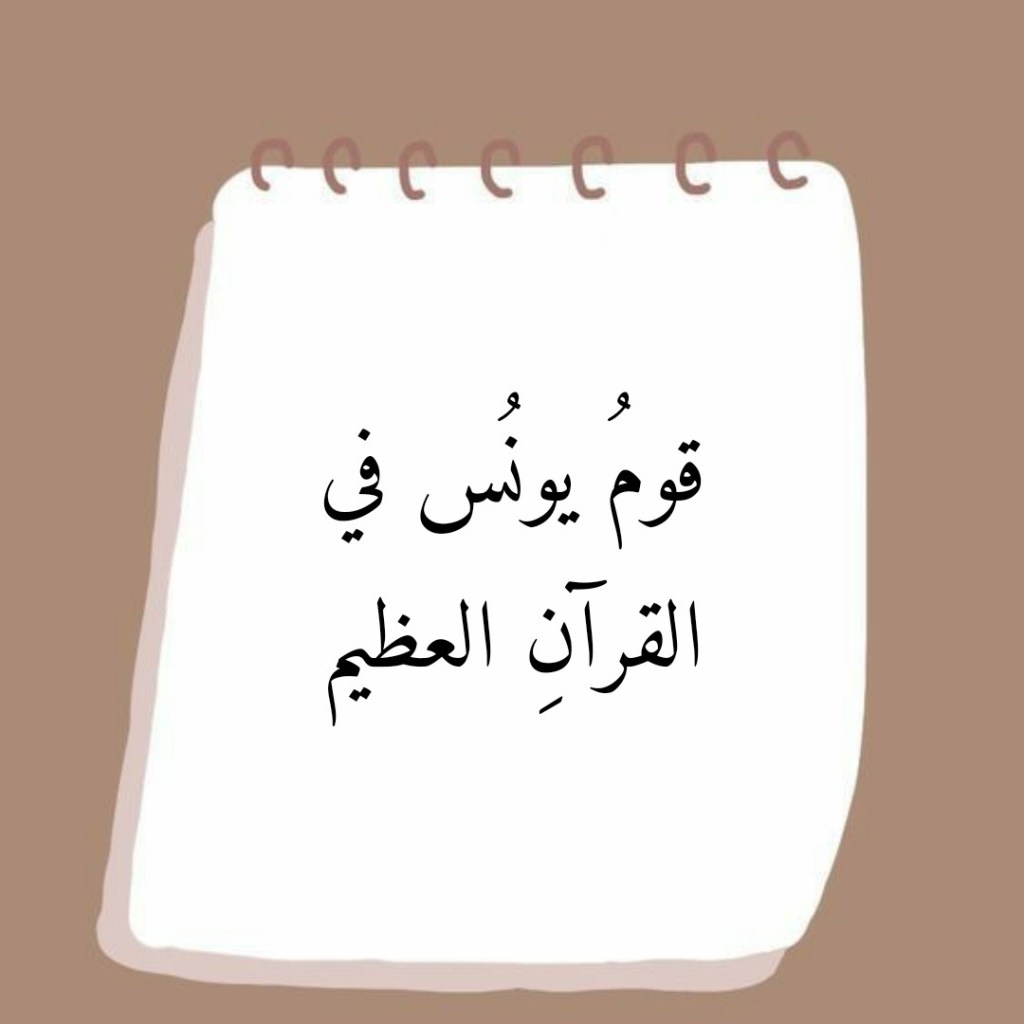 قومُ يونُس في
القرآنِ العظيم